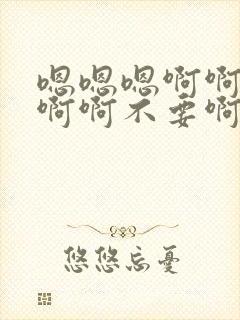 嗯嗯嗯啊啊
啊啊不要啊
悠悠忘憂